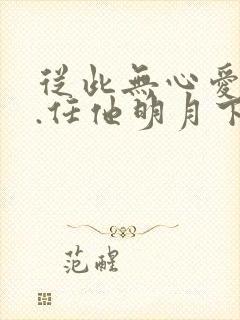 從此無心愛
.任他明月下
范醒